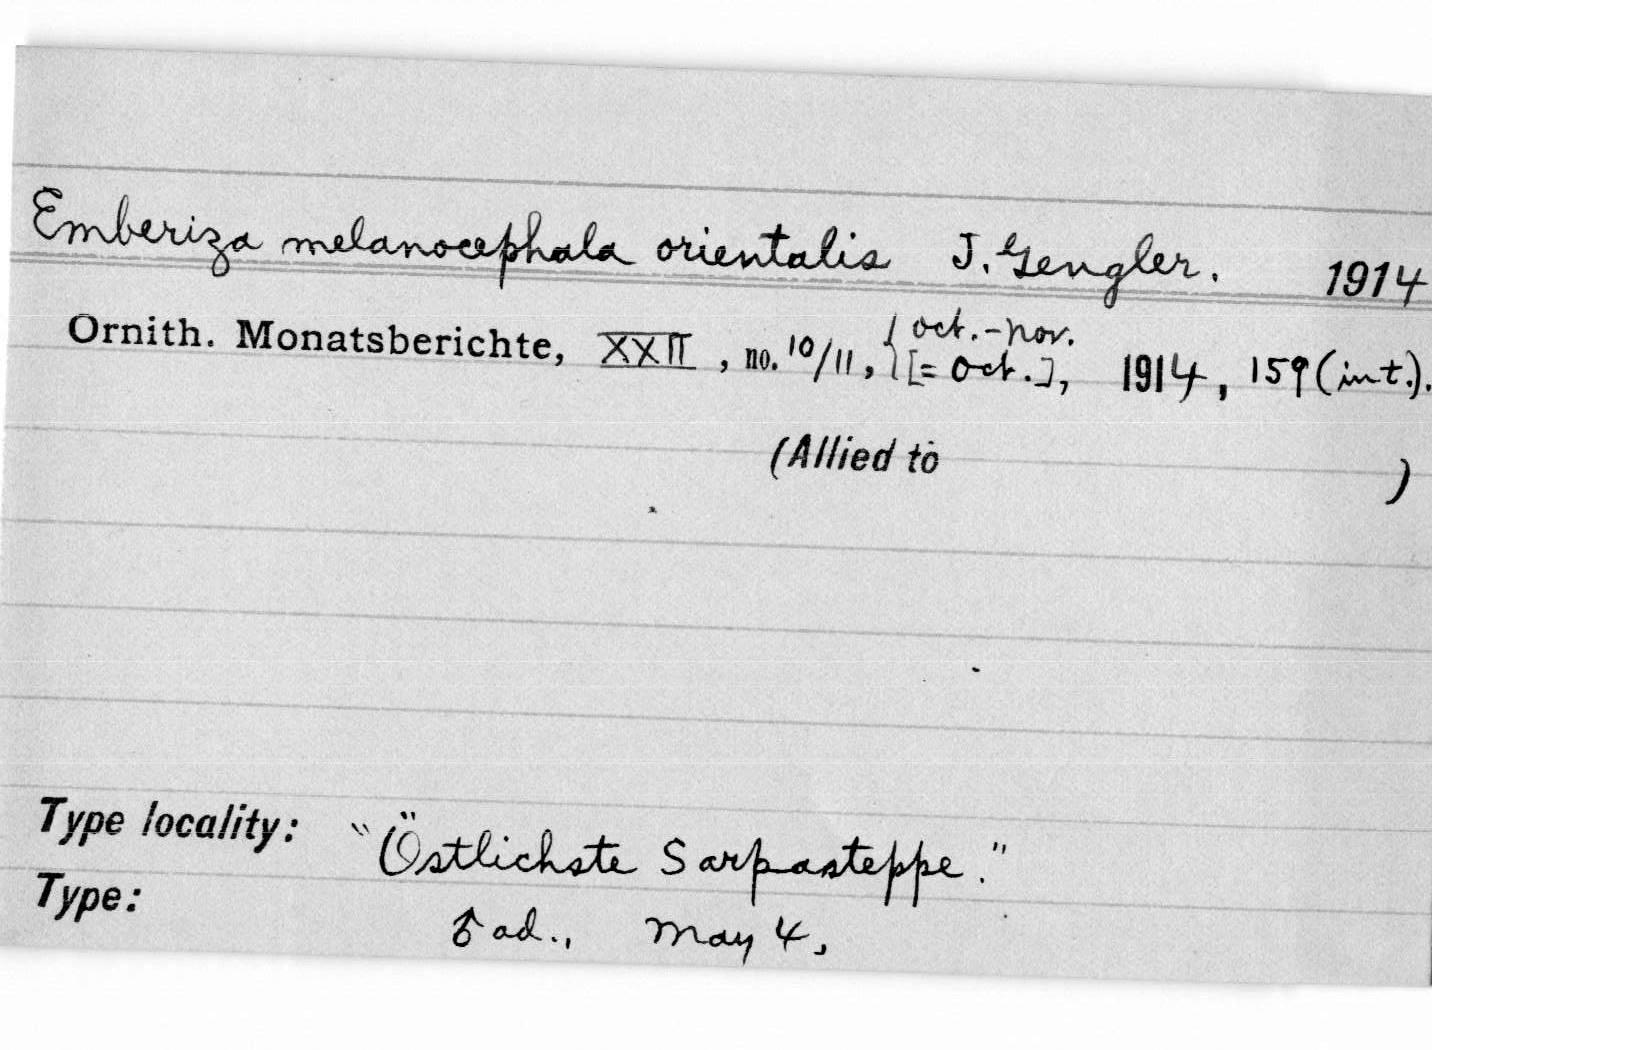 Emberiza melanocephala orientalis J. Gengler. 1914
Ornith. Monatsberichte, XXII, no. 10/11, { oct.-nov. [= Oct.], 1914, 159 (int.).
(Allied to )
Type locality: "Östlichste Sarpasteppe."
Type: ♂ ad., May 4,